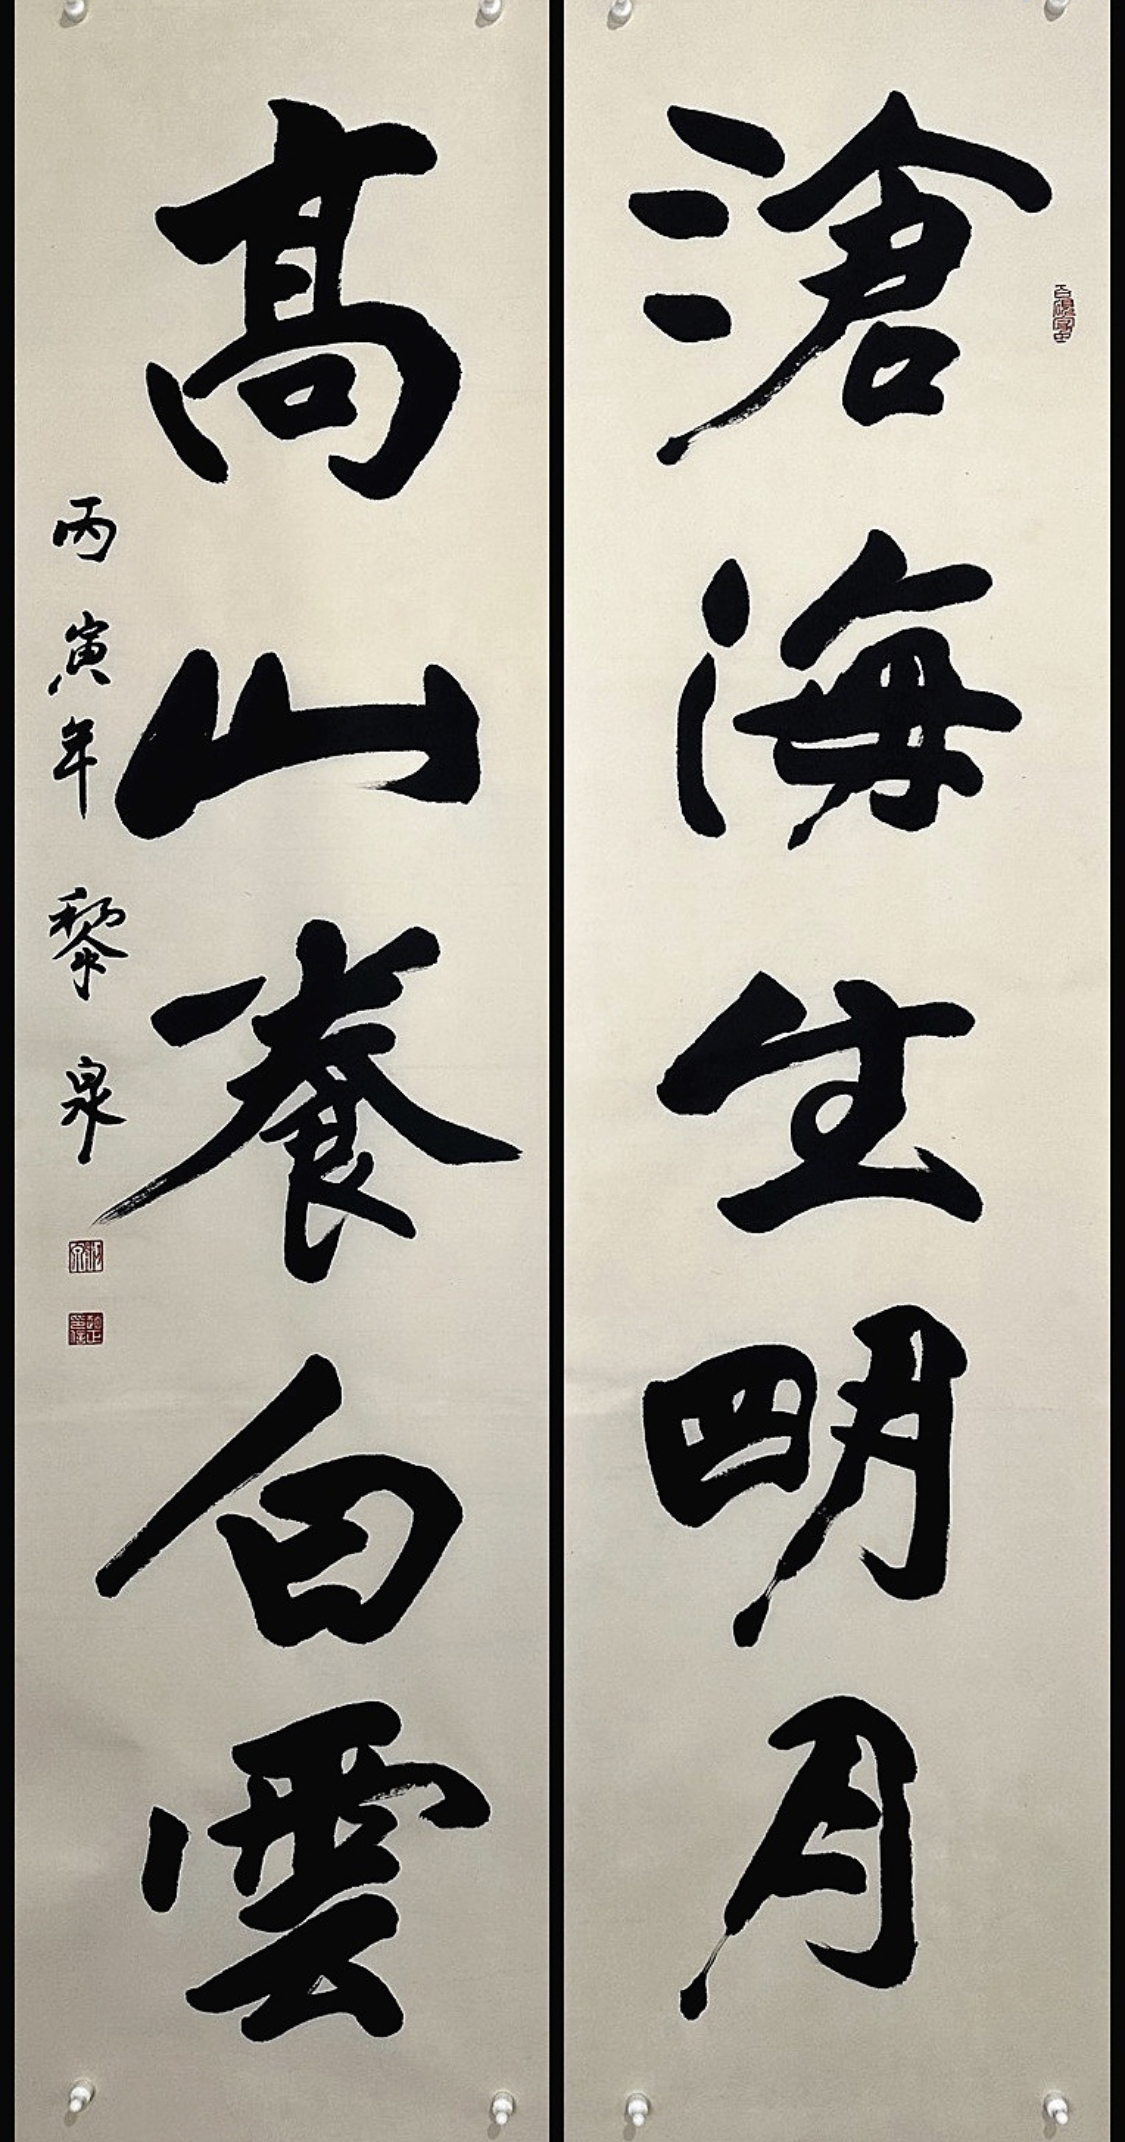 滄海生明月
高山養白雲
丙寅年 黎泉